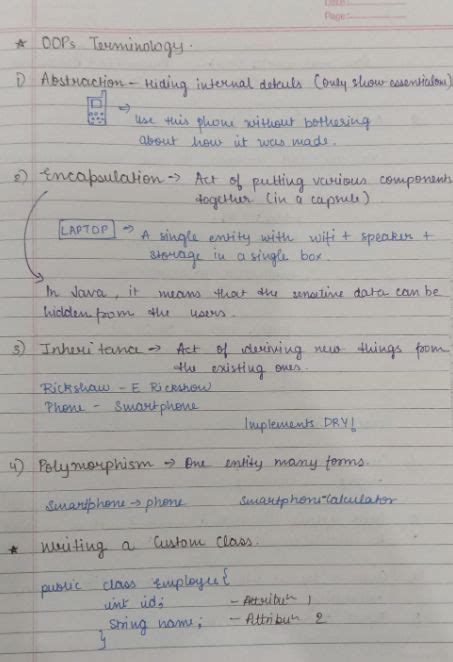 Date:
Page:
★ OOPs Terminology.
1) Abstraction – Hiding internal details (only show essential one)
→ Use this phone without bothering
about how it was made.
2) Encapsulation → Act of putting various components
together (in a capsule).
LAPTOP → A single entity with wifi + speaker +
storage in a single box.
In Java, it means that the sensitive data can be
hidden from the users.
3) Inheritance → Act of deriving new things from
the existing ones.
Rickshaw – E Rickshow
Phone – Smartphone
Implements DRY!
4) Polymorphism → One entity many forms.
Smartphone → phone Smartphone → Calculator
★ Writing a Custom Class.
public class Employee {
int id; – Attribute 1
String name; – Attribute 2
}